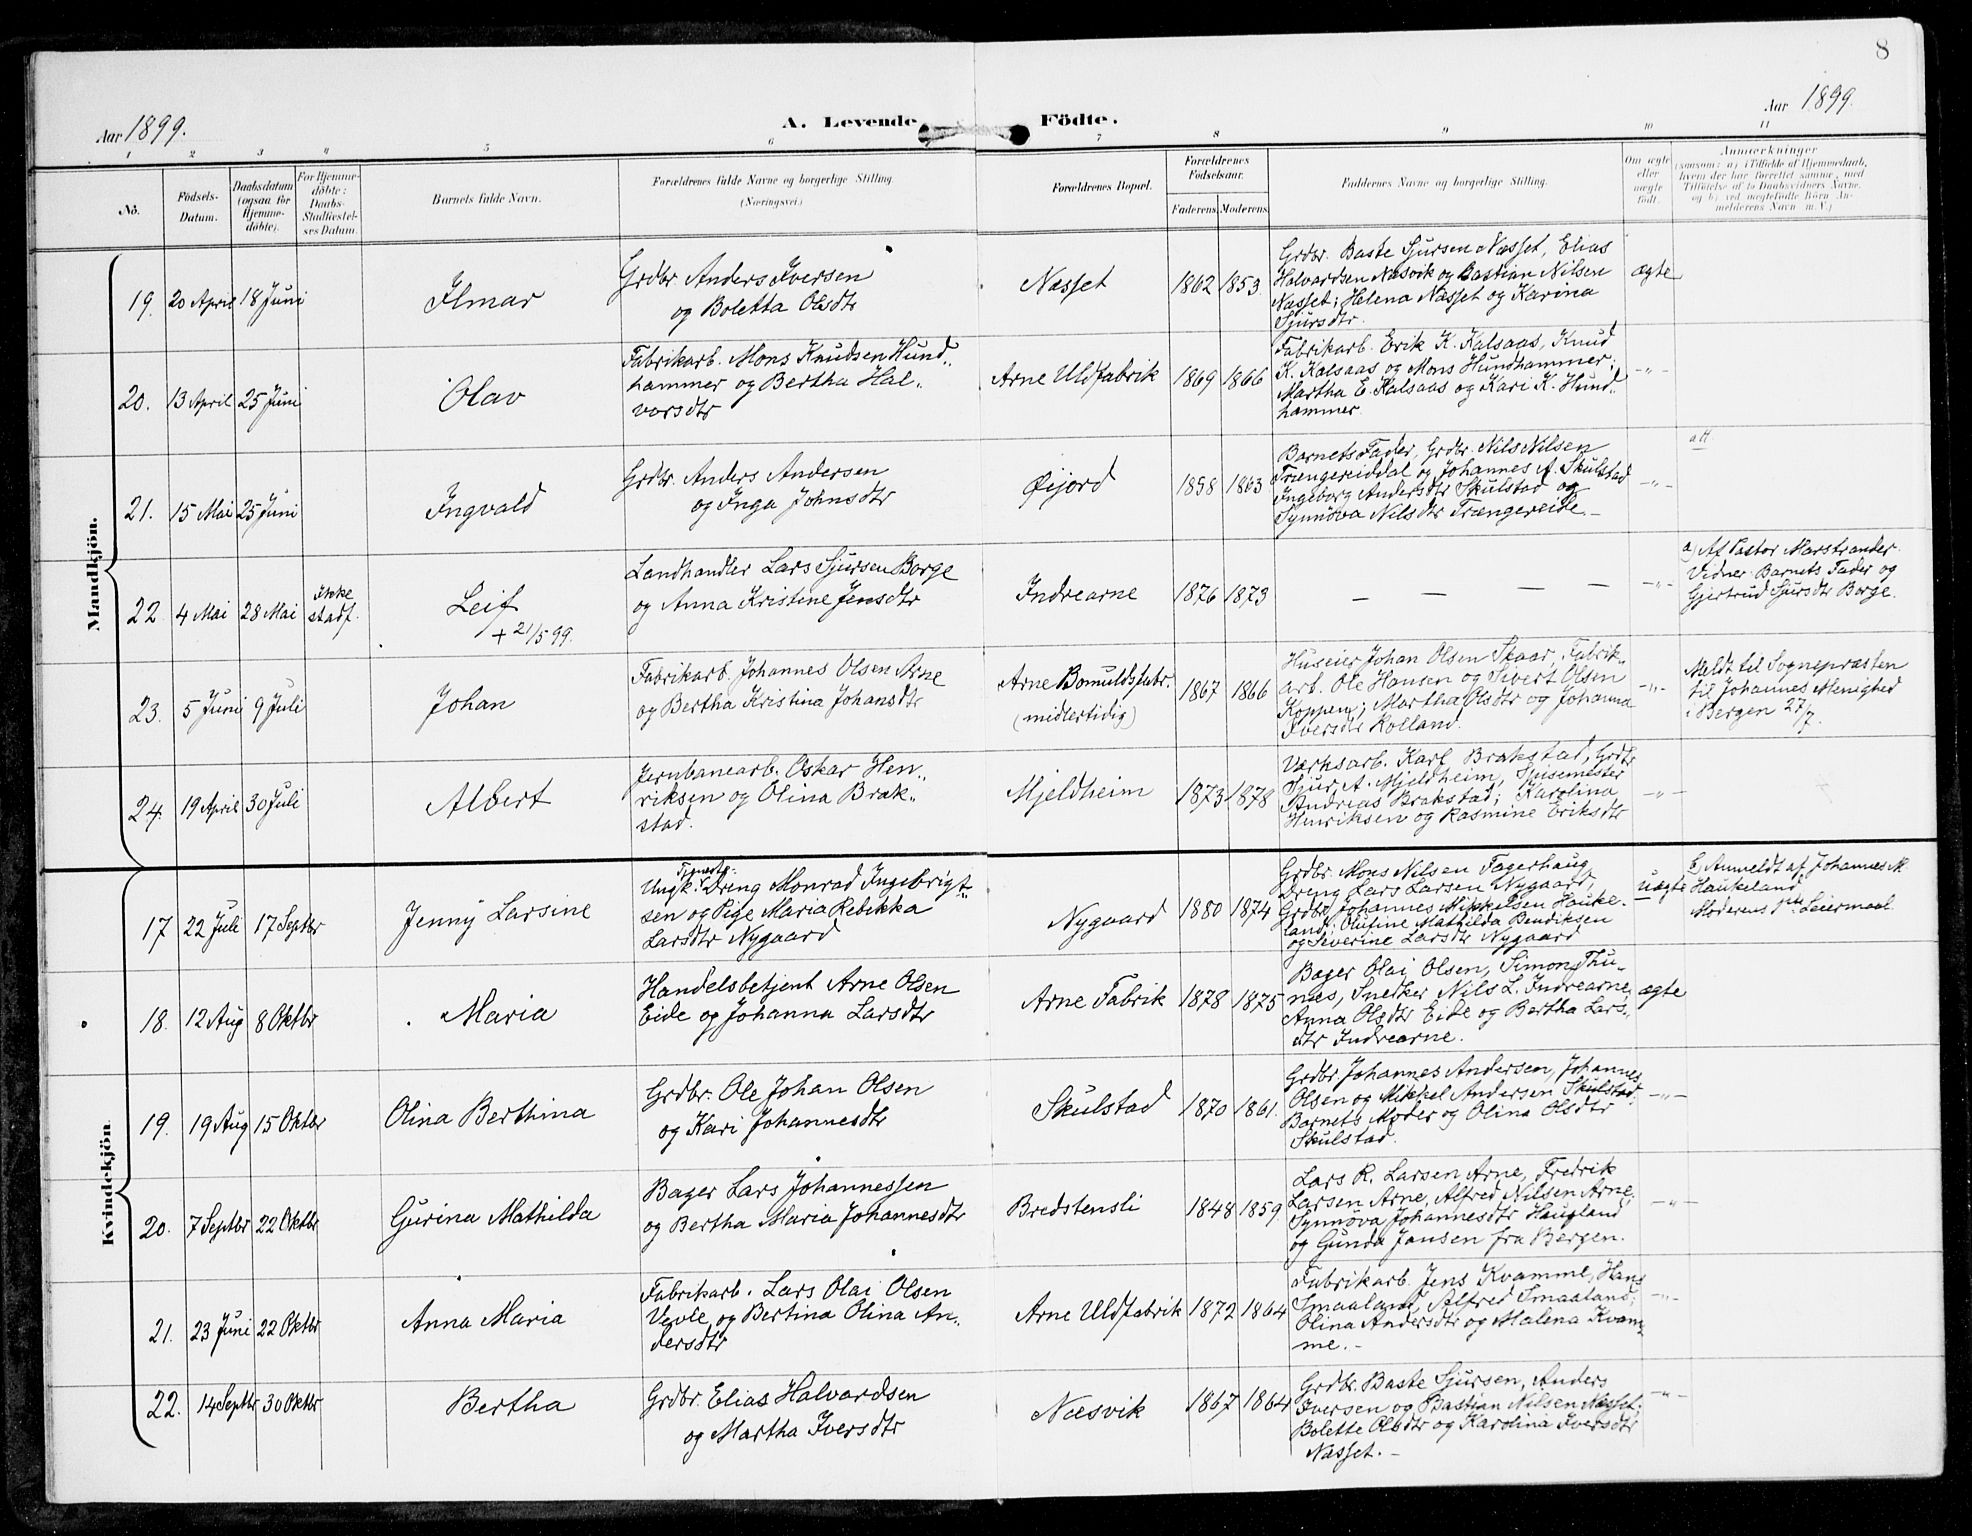 8
Aar 1899.
A. Levende Födte.
Aar 1899.
1 2 3 4 5 6 7 8 9 10 11
No.
Födsels-
Datum.
Daabsdatum
(ogsaa for
Hjemme-
döbte).
For Hjemme-
döbte:
Daabs-
Stadfæstel-
ses Datum.
Barnets fulde Navn.
Forældrenes fulde Navne og borgerlige Stilling.
(Næringsvei.)
Forældrenes Bopæl.
Forældrenes
Födselsaar.
Faderens. Moderens.
Faddernes Navne og borgerlige Stilling.
Om ægte
eller
uægte
födt.
Anmærkninger
(saasom: a) i Tilfælde af Hjemmedaab,
hvem der har forrettet samme, med
Tilföielse af to Daabsvidners Navne,
og b) ved uægtefödte Börn An-
melderens Navn m. V.)
Mandkjön.
19. 20 April 18 Juni
Ilmar
Grdbr. Anders Iversen
og Boletta Olsdtr
Næsset
1862 1853
Grdbr. Baste Sjursen Næsset, Elias
Halvardsen Næsvik og Bastian Nilsen
Næsset; Helena Næsset og Karina
Sjursdtr.
ægte
20. 13 April 25 Juni
Olav
Fabrikarb. Mons Knudsen Hund„
hammer og Bertha Hal„
vorsdtr
Arne Uldfabrik
1869 1866
Fabrikarb. Erik K. Kalsaas, Knud
K. Kalsaas og Mons Hundhammer;
Martha E. Kalsaas og Kari K. Hund„
hammer.
-„-
21. 15 Mai 25 Juni
Ingvald
Grdbr. Anders Andersen
og Inga Johnsdtr
Øijord
1858 1863
Barnets Fader, Grdbr. Nils Nilsen
Trængereiddal og Johannes A. Skulstad
Ingeborg Andersdtr Skulstad og
Synnöva Nilsdtr Trængereide.-
-„-
att
22. 4 Mai 28 Mai
Ikke
stadf.
Leif
+ 21/5 99.
Landhandler Lars Sjursen Borge
og Anna Kristine Jensdtr
Indrearne
1876 1873
— — — —
-„-
a) Af Pastor Marstrander.
Vidner: Barnets Fader og
Gjertrud Sjursdtr Borge.
23. 5 Juni 9 Juli
Johan
Fabrikarb. Johannes Olsen Arne
og Bertha Kristina Johansdtr
Arne Bomuldsfabr.
(midlertidig)
1867 1866
Huseier Johan Olsen Skaar, Fabrik„
arb. Ole Hansen og Sivert Olsen
Koppen; Martha Olsdtr og Johanna
Iversdtr Rolland.
-„-
Meldt til Sognepræsten
til Johannes Menighed
i Bergen 27/7.
24. 19 April 30 Juli
Albert
Jernbanearb. Oskar Hen„
riksen og Olina Brak„
stad.
Mjeldheim
1873 1878
Værksarb. Karl Brakstad, Grdbr
Sjur A. Mjeldheim, Spisemester
Andreas Brakstad; Karolina
Henriksen og Rasmine Eriksdtr
-„-
Kvindekjön.
17 22 Juli 17 Septbr
Jenny Larsine
Tjeneste-
Ungk. Dreng Monrad Ingebrigt„
sen og Pige Maria Rebekka
Larsdtr Nygaard
Nygaard
1880 1874
Grdbr. Mons Nilsen Fagerhaug
Dreng Lars Larsen Nygaard,
Grdbr. Johannes Mikkelsen Hauke-
land; Olufine Mathilda Bendiksen
og Severine Larsdtr Nygaard
uægte
b) Anmeldt af Johannes M.
Haukeland
Moderens 1ste Leiermaal
18. 12 Aug 8 Oktbr
Maria
Handelsbetjent Arne Olsen
Eide og Johanna Larsdtr
Arne Fabrik
1878 1875
Bager Olai Olsen, Simon Thu-
næs, Snedker Nils L. Indrearne,
Anna Olsdtr Eide og Bertha Lars„
dtr Indrearne.
ægte
19. 19 Aug 15 Oktbr
Olina Berthina
Grdbr. Ole Johan Olsen
og Kari Johannesdtr
Skulstad
1870 1861.
Grdbr Johannes Andersen, Johannes
Olsen og Mikkel Andersen Skulstad,
Barnets Moder og Olina Olsdtr
Skulstad.
-„-
20. 7 Septbr 22 Oktbr
Gurina Mathilda
Bager Lars Johannessen
og Bertha Maria Johannesdtr
Bredstensli
1848 1859
Lars R. Larsen Arne, Fredrik
Larsen Arne, Alfred Nilsen Arne,
Synnöva Johannesdtr Haugland
og Gunda Jansen fra Bergen.
-„-
21. 23 Juni 22 Oktbr
Anna Maria
Fabrikarb. Lars Olai Olsen
Vevle og Bertina Olina An„
dersdtr
Arne Uldfabrik
1872 1864
Fabrikarb. Jens Kvamme, Hans
Smaaland, Alfred Smaaland;
Olina Andersdtr og Malena Kvam„
me.-
-„-
22. 14 Septbr 30 Oktbr
Bertha
Grdbr. Elias Halvardsen
og Martha Iversdtr
Næsvik
1867 1864
Grdbr. Baste Sjursen, Anders
Iversen og Bastian Nilsen Næsset;
Bolette Olsdtr og Karolina Iversdtr
Næsset.-
-„-